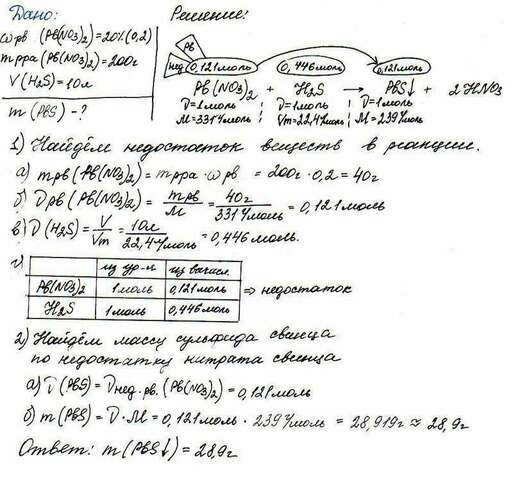 Дано:
ω рв (Pb(NO₃)₂) = 20% (0,2)
m рра (Pb(NO₃)₂) = 200г
V(H₂S) = 10л
m(PbS) - ?
Решение:
рв
нед 0,121моль 0,446моль 0,121моль
Pb(NO₃)₂ + H₂S → PbS↓ + 2HNO₃
ν=1моль ν=1моль ν=1моль
M=331г/моль Vm=22,4л/моль M=239г/моль
1) Найдём недостаток веществ в реакции.
а) m рв (Pb(NO₃)₂) = m рра · ω рв = 200г · 0,2 = 40г
б) ν рв (Pb(NO₃)₂) = m рв / M = 40г / 331г/моль = 0,121моль
в) ν (H₂S) = V / Vm = 10л / 22,4л/моль = 0,446моль.
г)
из ур-я из вычисл.
Pb(NO₃)₂ 1моль 0,121моль ⇒ недостаток
H₂S 1моль 0,446моль
2) Найдём массу сульфида свинца
по недостатку нитрата свинца
а) ν (PbS) = ν нед. рв. (Pb(NO₃)₂) = 0,121моль
б) m (PbS) = ν · M = 0,121моль · 239г/моль = 28,919г ≈ 28,9г
Ответ: m (PbS↓) = 28,9г